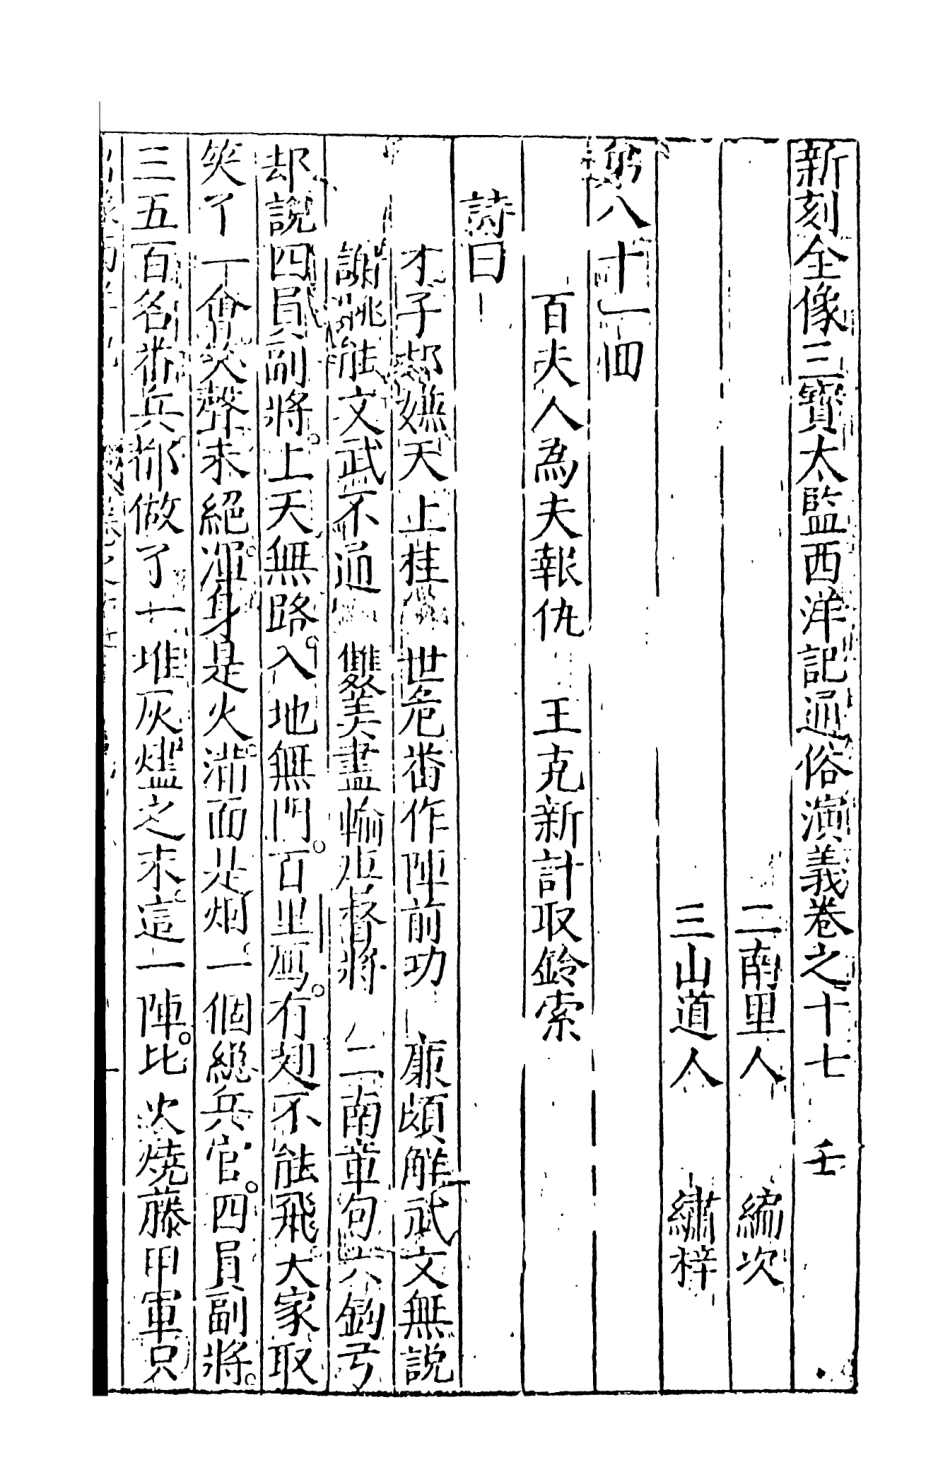 新刻全像三寶太監西洋記通俗演義卷之十七 壬
二南里人 編次
三山道人 繡梓
第八十一回
百夫人為夫報仇 王克新計取鈴索
詩曰
才子却嫌天上桂 世危番作陣前功 廉頗解武文無說
謝眺能文武不通 雙美盡輸 督將 二南章句六鈞弓
却說四員副將。上天無路。入地無門。百里鴈。有翅不能飛。大家取
笑了一會。笑聲未絕。渾身是火。滿面是烟。一個總兵官。四員副將。
三五百名番兵。都做了一堆灰燼之末。這一陣。比火燒藤甲軍只